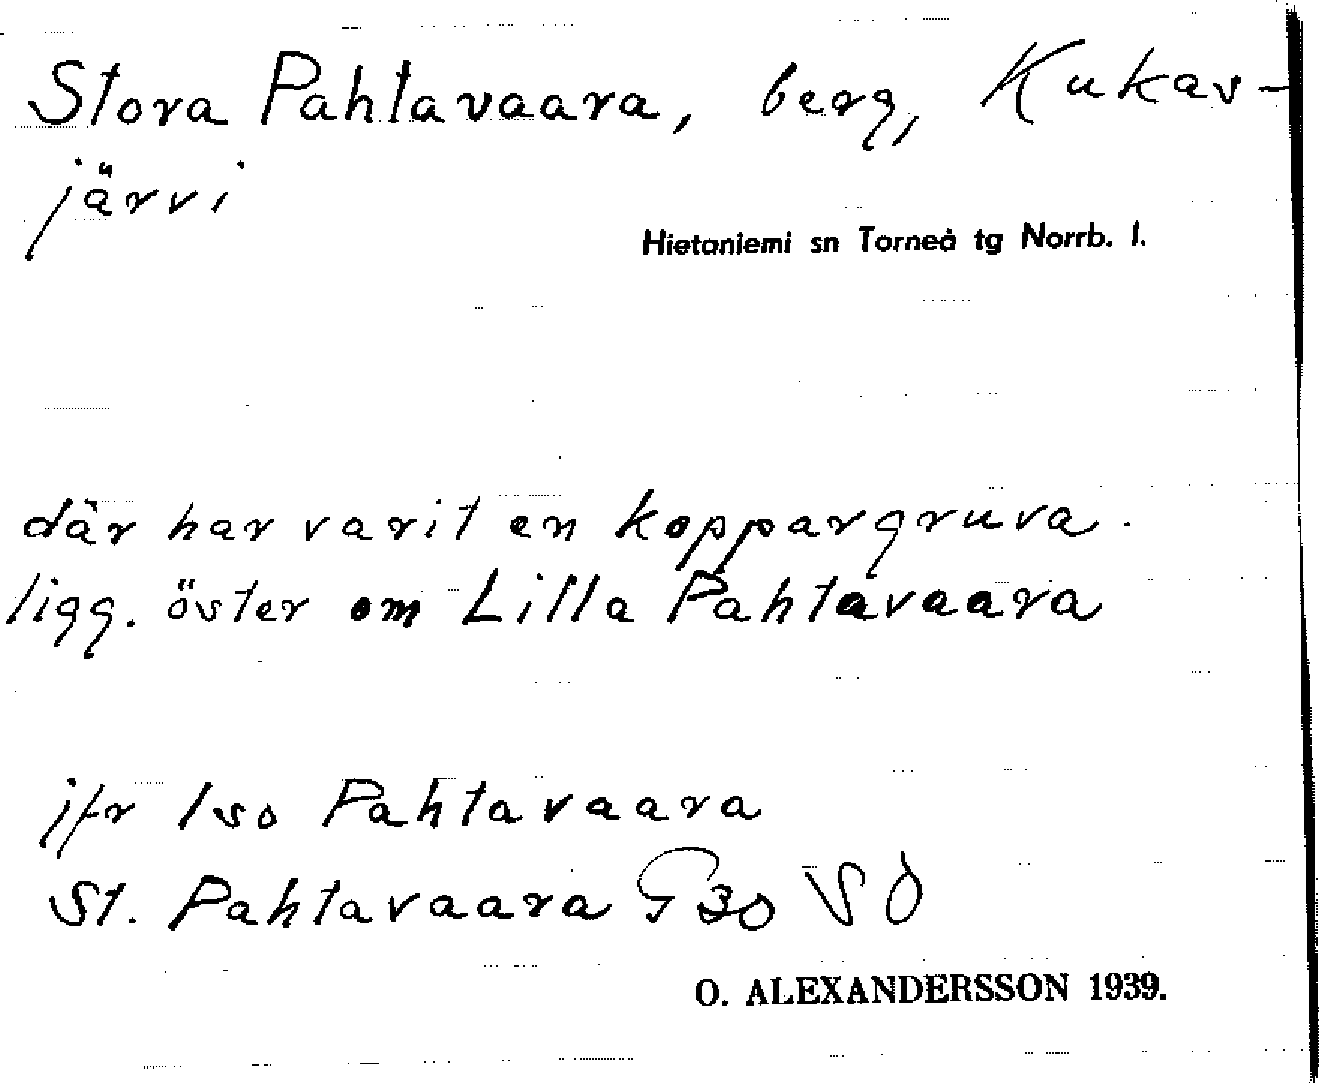 Stora Pahtavaara, berg, Kukas-
järvi
Hietaniemi sn Torneå tg Norrb. l.
där har varit en koppargruva.
ligg. öster om Lilla Pahtavaara
jfr Iso Pahtavaara
St. Pahtavaara G30 SÖ
O. ALEXANDERSSON 1939.